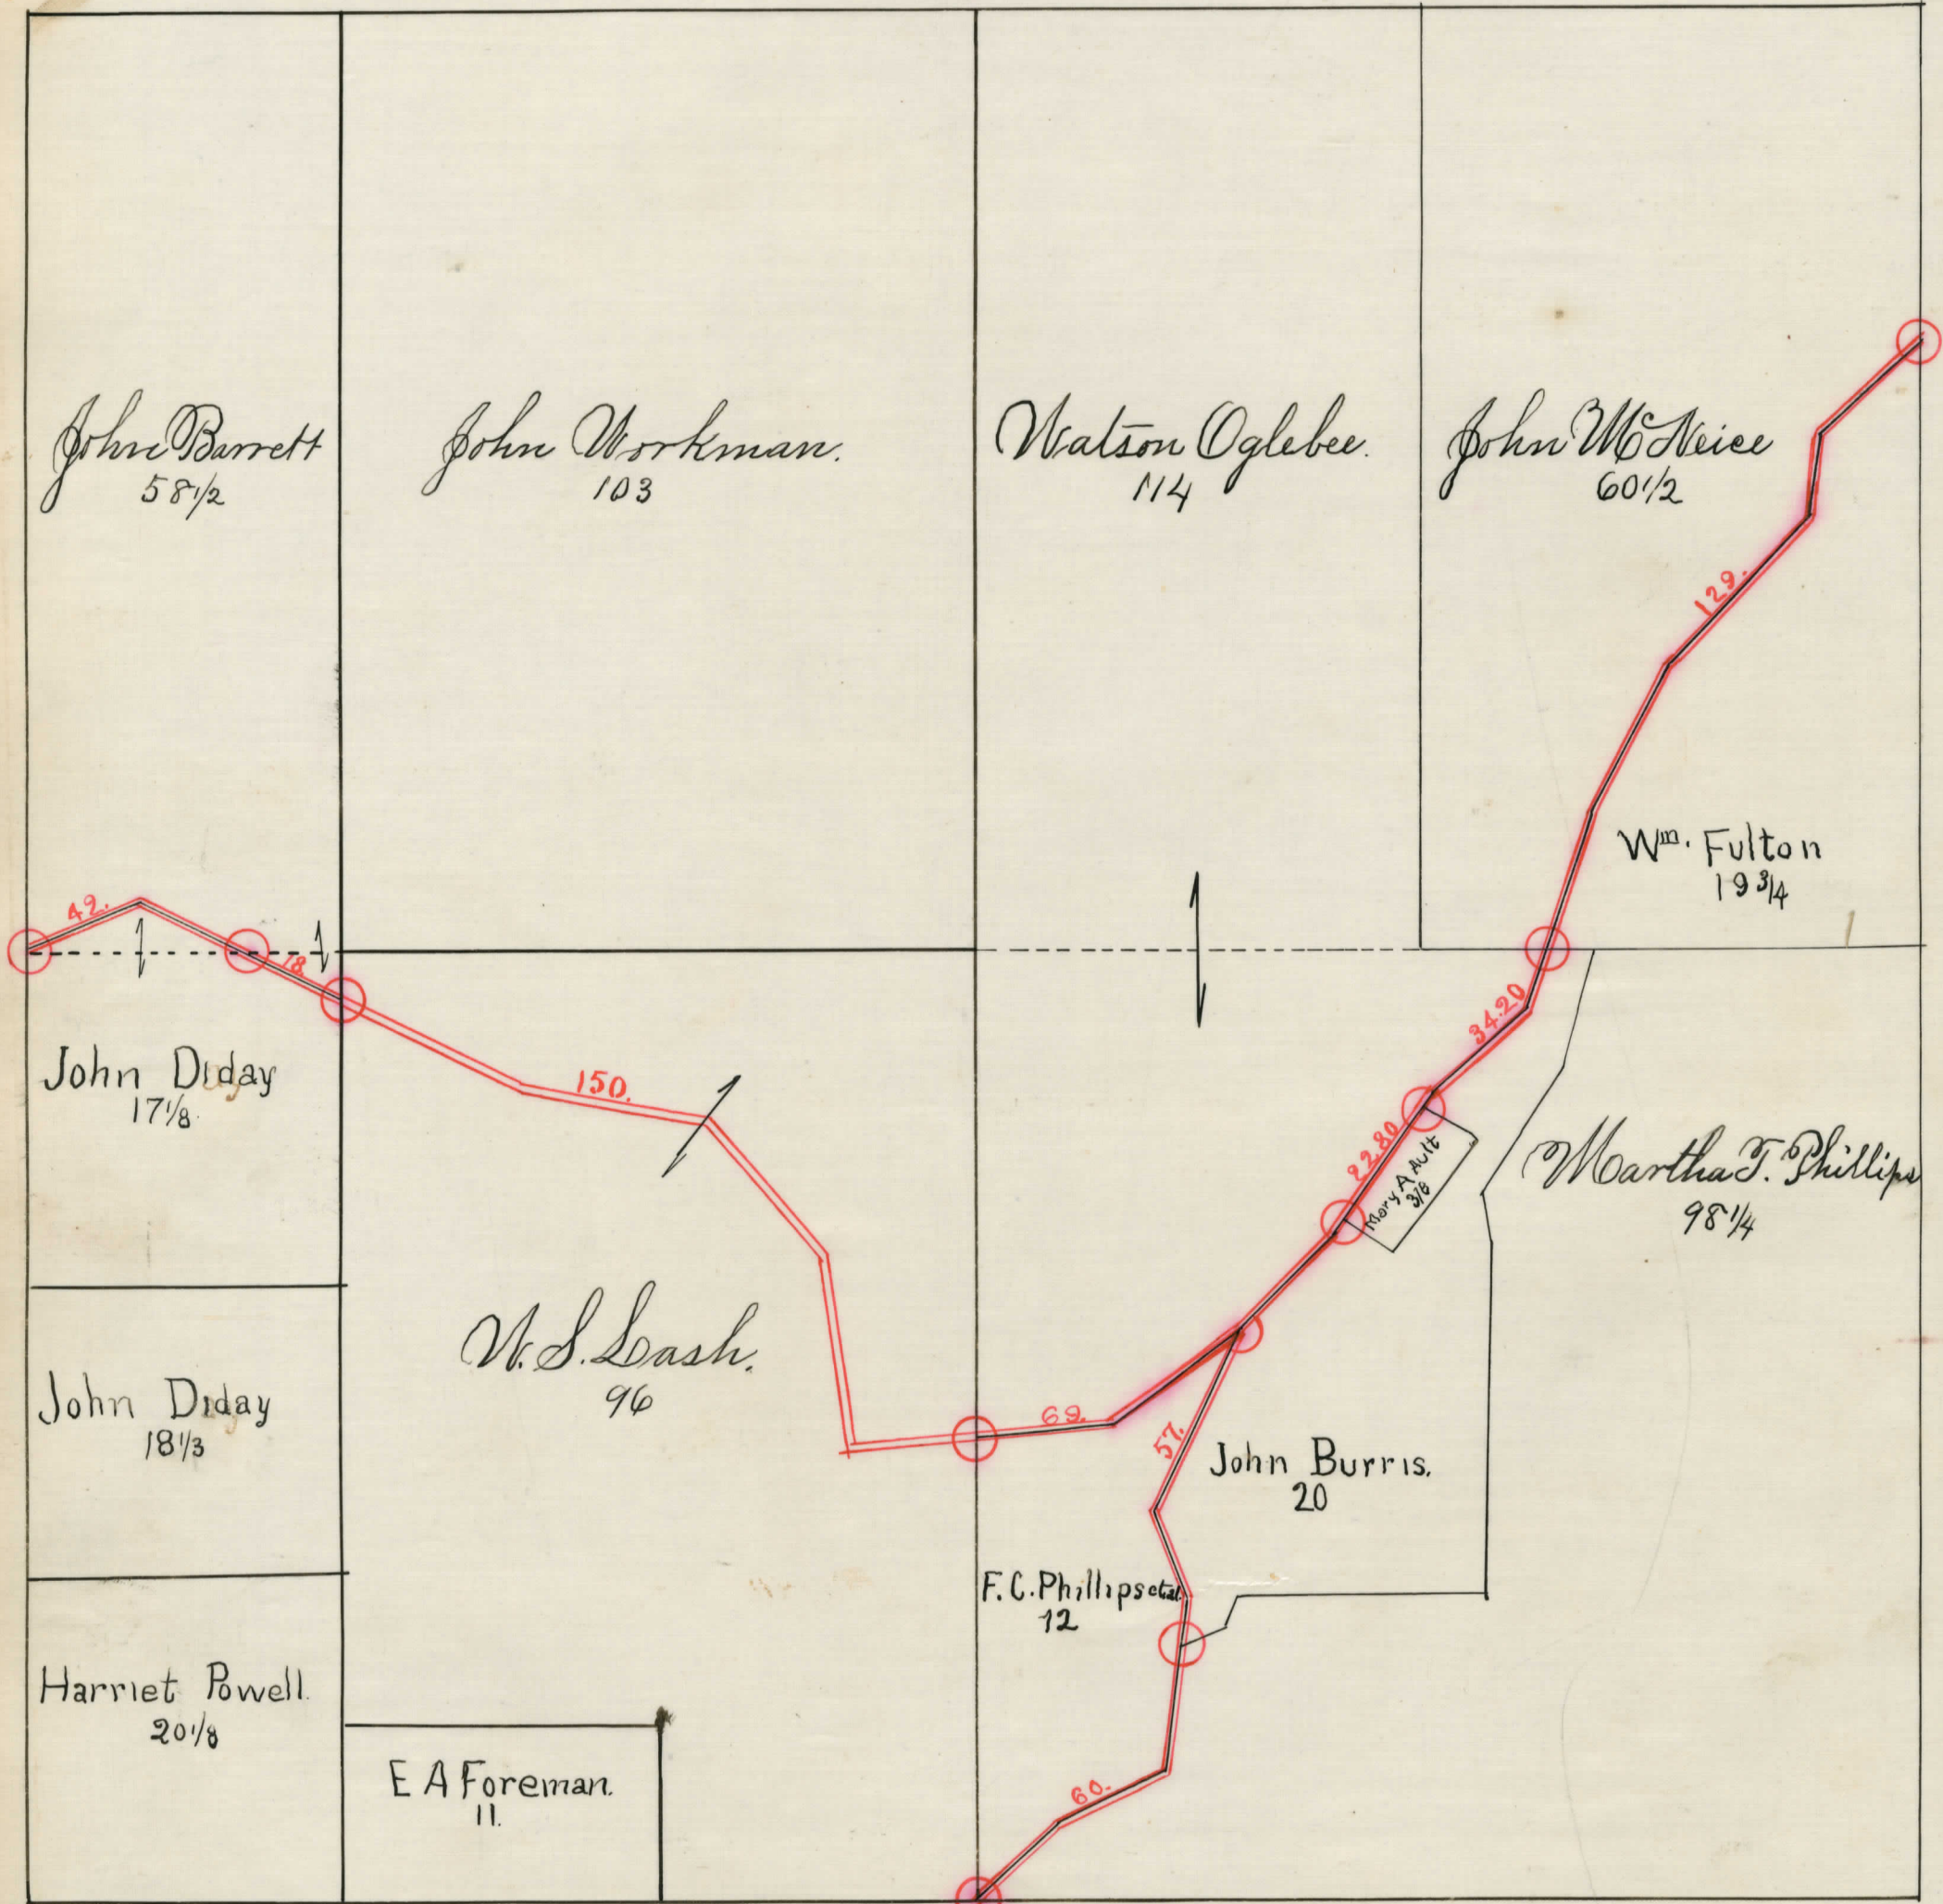 John Barrett
58 1/2
John Workman.
103
Watson Oglebee.
114
John McNeice
60 1/2
129.
Wm. Fulton
19 3/4
42.
18
34.20
John Diday
17 1/8.
150.
22.80
Mary A Ault
3/8
Martha T. Phillips
98 1/4
W. S. Lash.
96
John Diday
18 1/3
69.
57.
John Burris.
20
F. C. Phillips et al.
12
Harriet Powell.
20 1/8
E A Foreman.
11.
60.